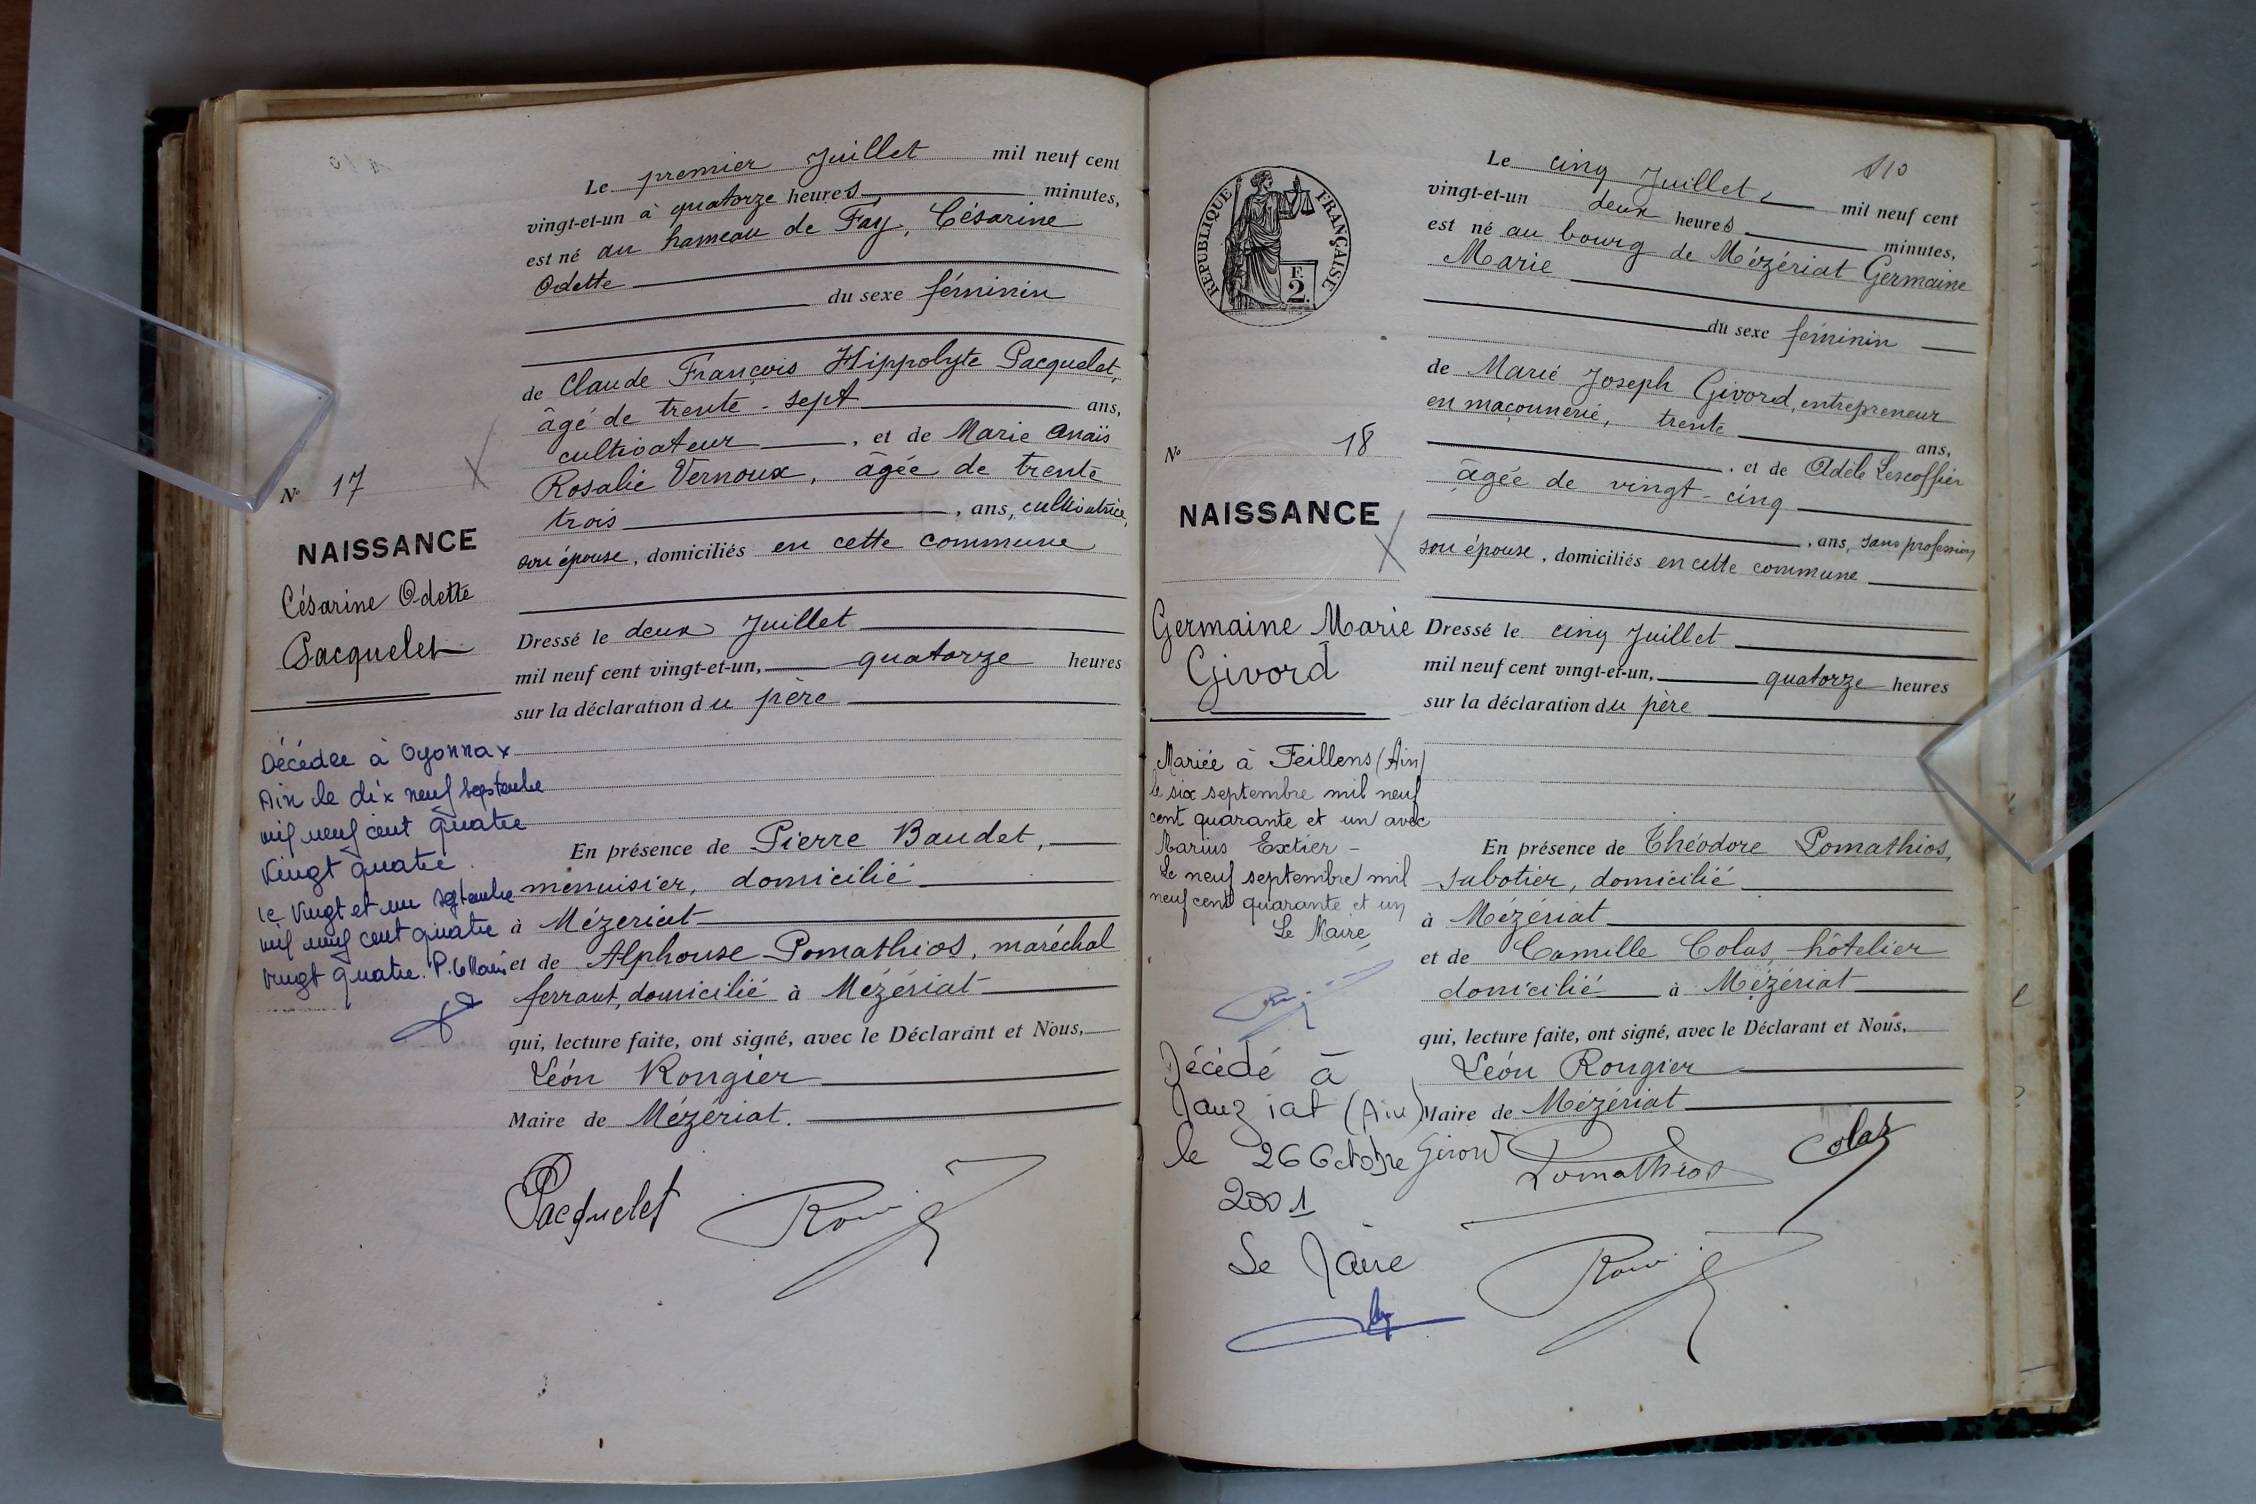 Le premier Juillet mil neuf cent
vingt-et-un à quatorze heures minutes,
est né au hameau de Fay, Césarine
Odette
du sexe féminin
de Claude François Hippolyte Pacquelet,
âgé de trente-sept ans,
cultivateur, et de Marie Anaïs
Rosalie Vernoux, âgée de trente
trois, ans, cultivatrice,
son épouse, domiciliés en cette commune
Nº 17
NAISSANCE
Césarine Odette
Pacquelet
Dressé le deux Juillet
mil neuf cent vingt-et-un, quatorze heures
sur la déclaration du père
En présence de Pierre Baudet,
menuisier, domicilié
à Mézériat
et de Alphonse Pomathios, maréchal
ferrant, domicilié à Mézériat
qui, lecture faite, ont signé, avec le Déclarant et Nous,
Léon Rougier
Maire de Mézériat.
Pacquelet
Décédée à Oyonnax
Ain le dix neuf septembre
mil neuf cent quatre
vingt quatre.
le vingt et un septembre
mil neuf cent quatre
vingt quatre. P. le Maire
110
RÉPUBLIQUE FRANÇAISE
F.
2.
Le cinq Juillet, mil neuf cent
vingt-et-un deux heures minutes,
est né au bourg de Mézériat Germaine
Marie
du sexe féminin
de Marie Joseph Givord, entrepreneur
en maçonnerie, trente ans,
, et de Adèle Lescoffier
âgée de vingt-cinq
, ans, sans profession,
son épouse, domiciliés en cette commune
Nº 18
NAISSANCE
Germaine Marie
Givord
Dressé le cinq Juillet
mil neuf cent vingt-et-un, quatorze heures
sur la déclaration du père
En présence de Théodore Pomathios,
sabotier, domicilié
à Mézériat
et de Camille Colas, hôtelier
domicilié à Mézériat
qui, lecture faite, ont signé, avec le Déclarant et Nous,
Léon Rougier
Maire de Mézériat
Givord Pomathios Colas
Mariée à Feillens (Ain)
le six septembre mil neuf
cent quarante et un avec
Marius Extier -
Le neuf septembre mil
neuf cent quarante et un
Le Maire,
Décédé à
(Ain)
le 26 Octobre
2001
Le Maire